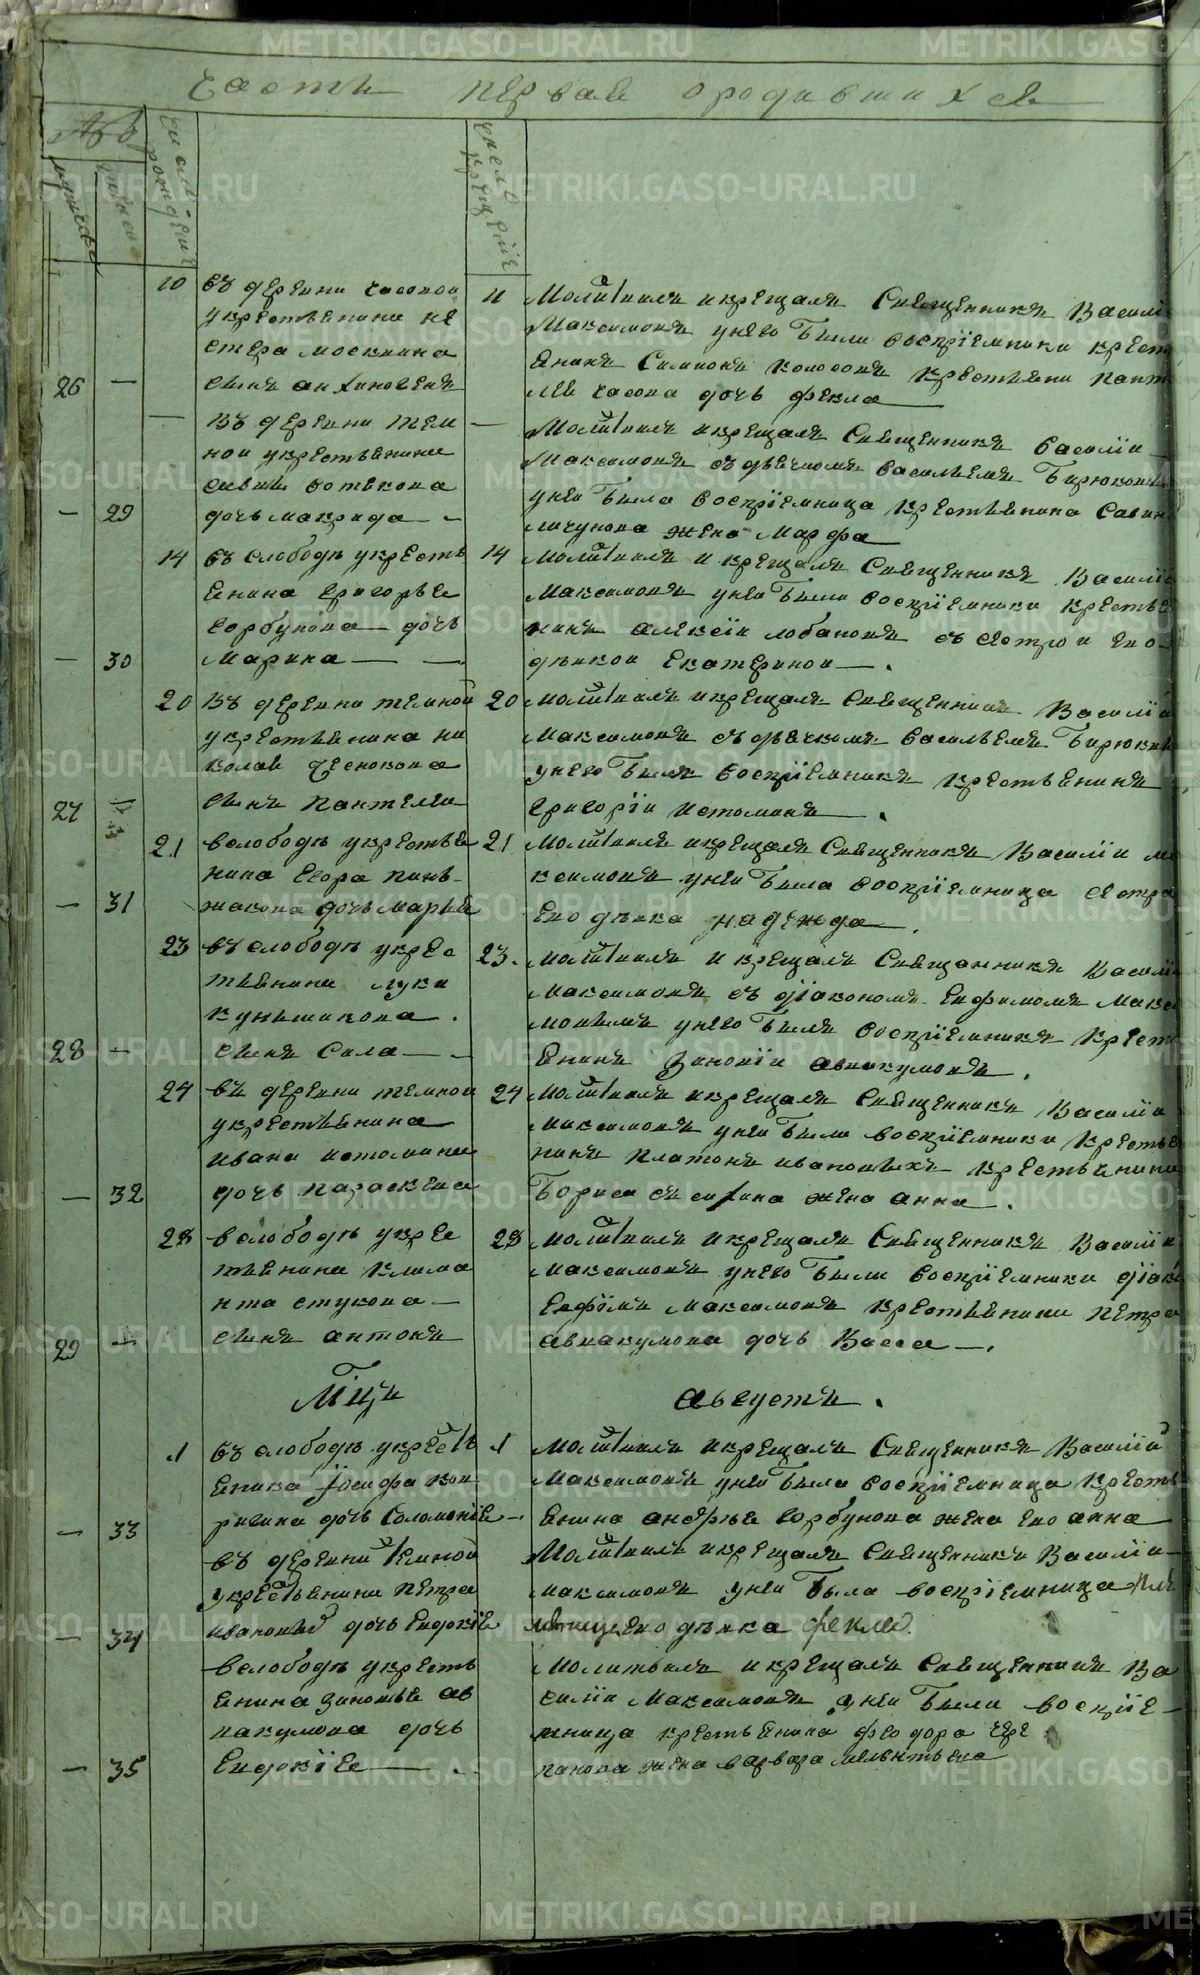 METRIKI.GASO-URAL.RU
часть первая о родившихся
№
мужеска
женска
число рождения
число крещения
10 въ деревни часовой
у крестьянина не
стера москвина
26 — сынъ анхиновеня
11 Молитвилъ и крещалъ Священникъ Василiй
Максимовъ у него были восприемники крест
янинъ Симионъ колосовъ крестьянина пант
лея часова дочь фекла —
— въ деревни тем
ной у крестьянина
савы вотякова
— 29 дочь макрида —
— Молитвилъ и крещалъ Священникъ Василiи
Максимовъ съ дьячкомъ васильемъ Бирюковы
у нея была восприемница крестьянина Савин
личунова жена Марфа
14 въ слободѣ у кресть
янина григорья
горбунова дочь
— 30 Марина — —
14 молитвилъ и крещалъ Священникъ Василiй
Максимовъ у нея были восприемники крестья
нинъ алексiи лобановъ съ сестрой ево
дѣвкой Екатериной —.
20 въ деревни темной
у крестьянина ни
колая чеснокова
27 — сынъ пантелей
20 молитвилъ и крещалъ Священникъ Василiй
Максимовъ съ дьячкомъ васильемъ Бирюковы
у него былъ восприемникъ крестьянинъ
григорiи истоминъ —.
21 в слободѣ у крестья
нина егора пинь
— 31 жакова дочь Марья
21 молитвилъ и крещалъ Священникъ Василiи ма
ксимовъ у нея была восприемница сестра
ево дѣвка надежда .
23 въ слободѣ у крес
тьянина луки
кунщикова .
28 — сынъ Сила — —
23. молитвилъ и крещалъ Священникъ Василiи
Максимовъ съ дiакономъ Евфимомъ Макси
мовымъ у него былъ восприемникъ крест
янинъ Зиновiи авакумовъ .
24 въ деревни темной
у крестьянина
ивана истомина
— 32 дочь параскева
24 молитвилъ и крещалъ Священникъ Василiи
максимовъ у нея были восприемники крестья
нинъ платонъ ивановыхъ крестьянина
Бориса жена анна .
28 в слободѣ у крес
тьянина клима
нта стукова —
29 — сынъ антонъ
28 молитвилъ и крещалъ Священникъ Василiи
Максимовъ у него были восприемники дiако
Евфимъ Максимовъ крестьянина петра
авакумова дочь Васса —.
Мцъ августъ .
1 въ слободѣ у кресть
янина Iосифа кон
— 33 ригина дочь Соломонiя
1 молитвилъ и крещалъ Священникъ Василiй
Максимовъ у нея была восприемница кресть
янина андрея горбунова жена ево анна
въ деревни темной
у крестьянина петра
— 34 ивановыхъ дочь Евдокiя
Молитвилъ и крещалъ Священникъ Василiи
максимовъ у нея была восприемница пле
мянница ево дѣвка фекла
в слободѣ у кресть
янина зиновья ав
накумова дочь
— 35 Евдокiя —
Молитвилъ и крещалъ Священникъ Ва
силiи Максимовъ у нея были восприе
мница крестьянина феодора чере
панова жена варвара мелентьева